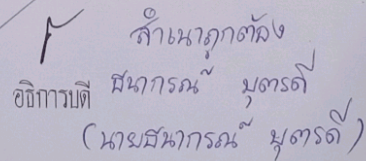 สำเนาถูกต้อง
อธิการบดี
ธนาภรณ์ บุตรดี
(นายธนาภรณ์ บุตรดี)